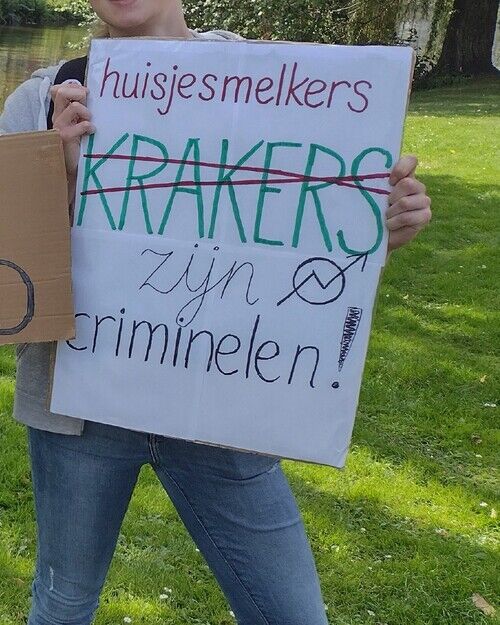 huisjesmelkers
KRAKERS
zijn
criminelen!